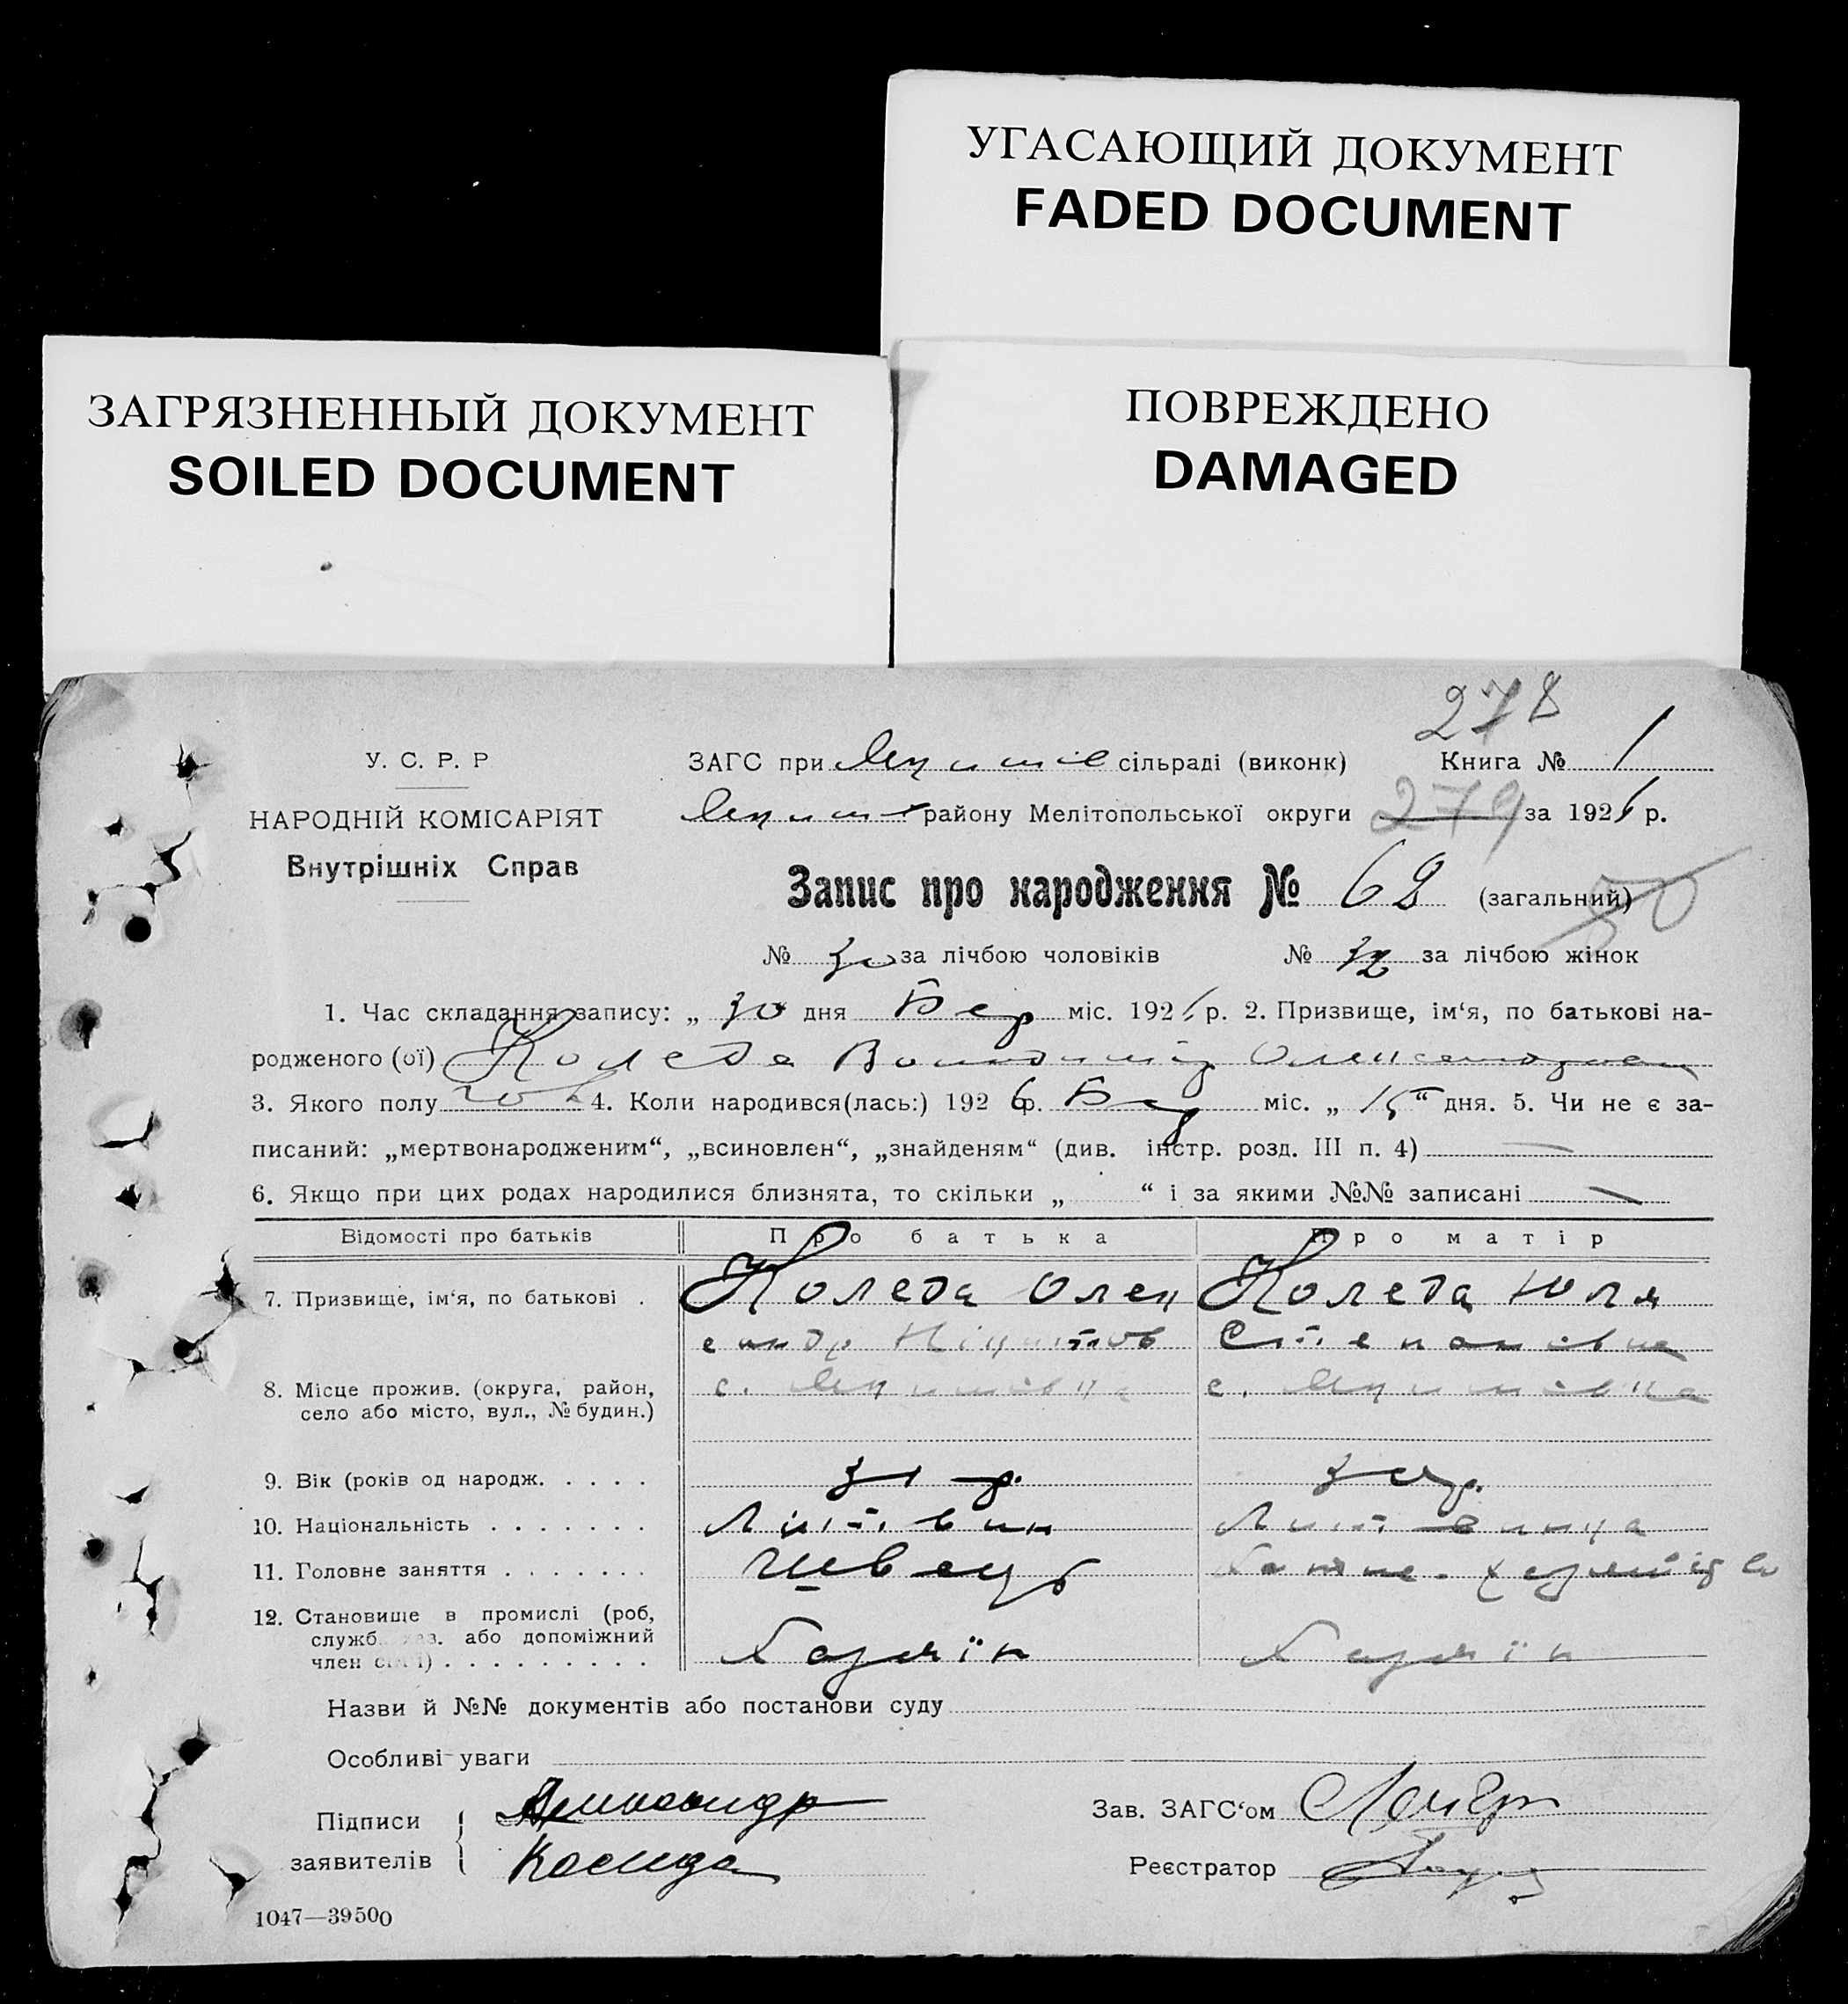 УГАСАЮЩИЙ ДОКУМЕНТ
FADED DOCUMENT
ЗАГРЯЗНЕННЫЙ ДОКУМЕНТ
SOILED DOCUMENT
ПОВРЕЖДЕНО
DAMAGED
278
У. С. Р. Р
ЗАГС при сільраді (виконк) Книга № 1
НАРОДНІЙ КОМІСАРІЯТ
району Мелітопольської округи 279 за 1926 р.
Внутрішніх Справ
Запис про народження № 62 (загальний) 50
№ 30 за лічбою чоловіків № 32 за лічбою жінок
1. Час складання запису: „ 30 дня Бер міс. 1926 р. 2. Призвище, ім‘я, по батькові на-
родженого (ої) Коледа Володимір Олександров
3. Якого полу чол 4. Коли народився(лась:) 1926 р. Бер міс. „ 15 “ дня. 5. Чи не є за-
писаний: „мертвонародженим“, „всиновлен“, „знайденям“ (див. інстр. розд. III п. 4) —
6. Якщо при цих родах народилися близнята, то скільки „ “ і за якими №№ записані —
Відомості про батьків Про батька Про матір
7. Призвище, ім‘я, по батькові . Коледа Олек Коледа Юля
сандр Нікітов Степановна
8. Місце прожив. (округа, район, с. с.
село або місто, вул., № будин.)
9. Вік (років од народж. . . . . 31 р. 30 р.
10. Національність . . . . . . . Литвин Литвинка
11. Головне заняття . . . . . . . Швець
12. Становище в промислі (роб,
служб. або допоміжний
член сім‘ї) . . . . . . . . . Хазяїн Хазяїн
Назви й №№ документів або постанови суду
Особливі уваги
Підписи Александр Зав. ЗАГС‘ом
заявителів Коледа Реєстратор
1047—39500